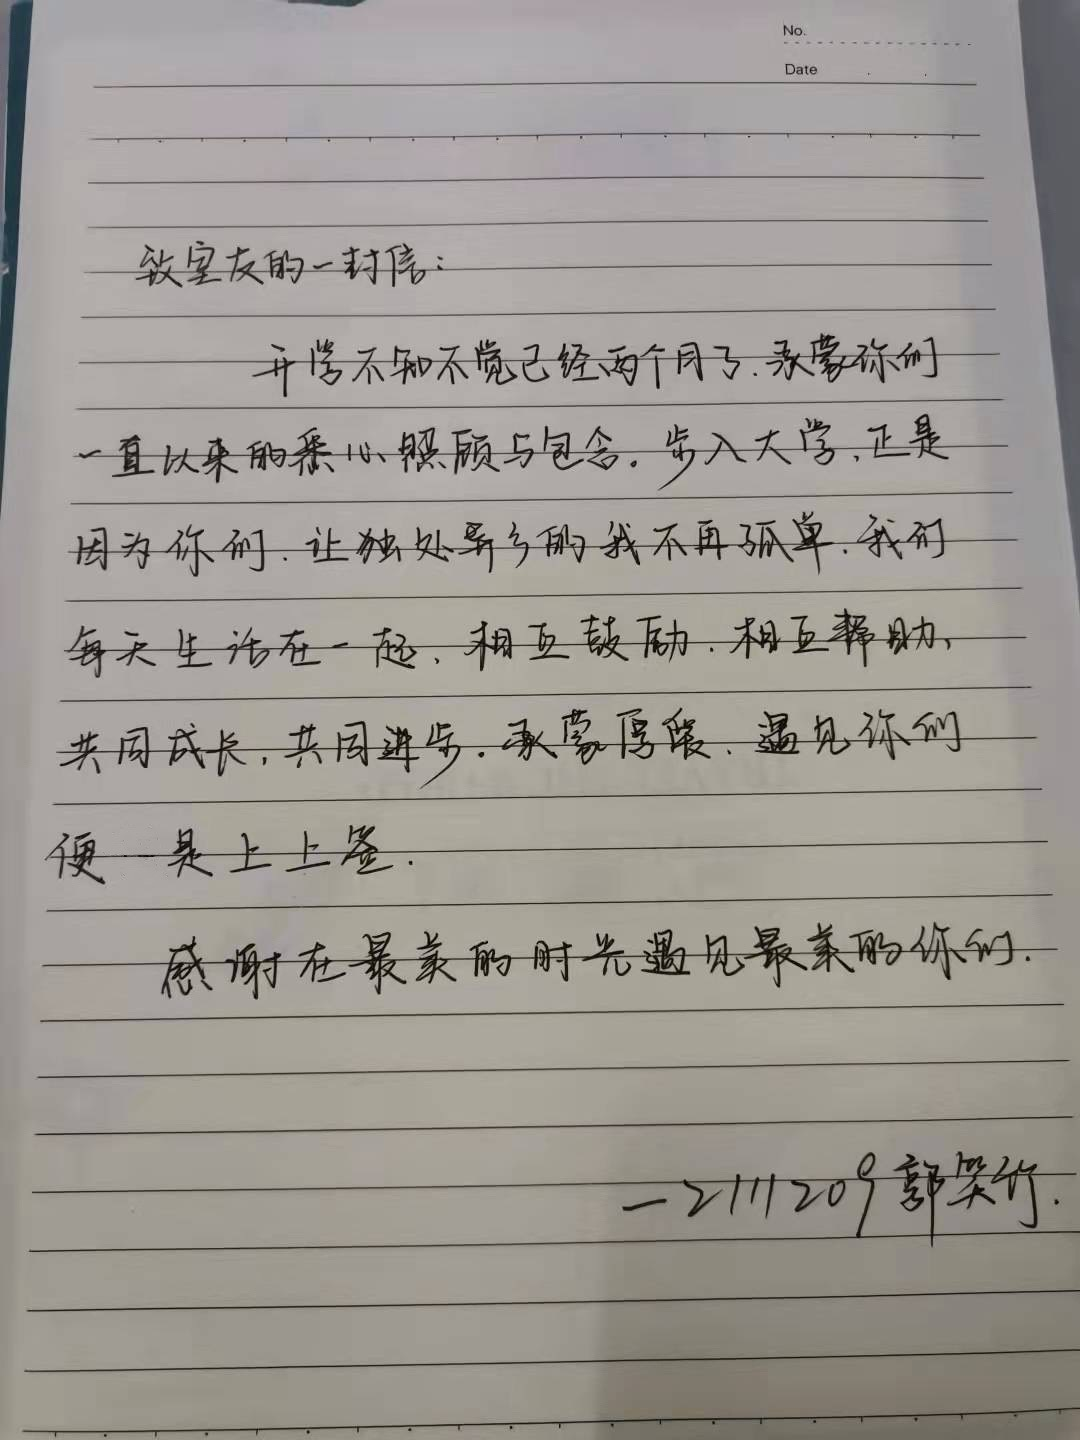 No.
Date
致室友的一封信:
开学不知不觉已经两个月了.承蒙你们
一直以来的悉心照顾与包含。步入大学,正是
因为你们.让独处异乡的我不再孤单.我们
每天生活在一起.相互鼓励.相互帮助、
共同成长,共同进步.承蒙厚爱.遇见你们
便一是上上签.
感谢在最美的时光遇见最美的你们.
—2111209郭笑竹.